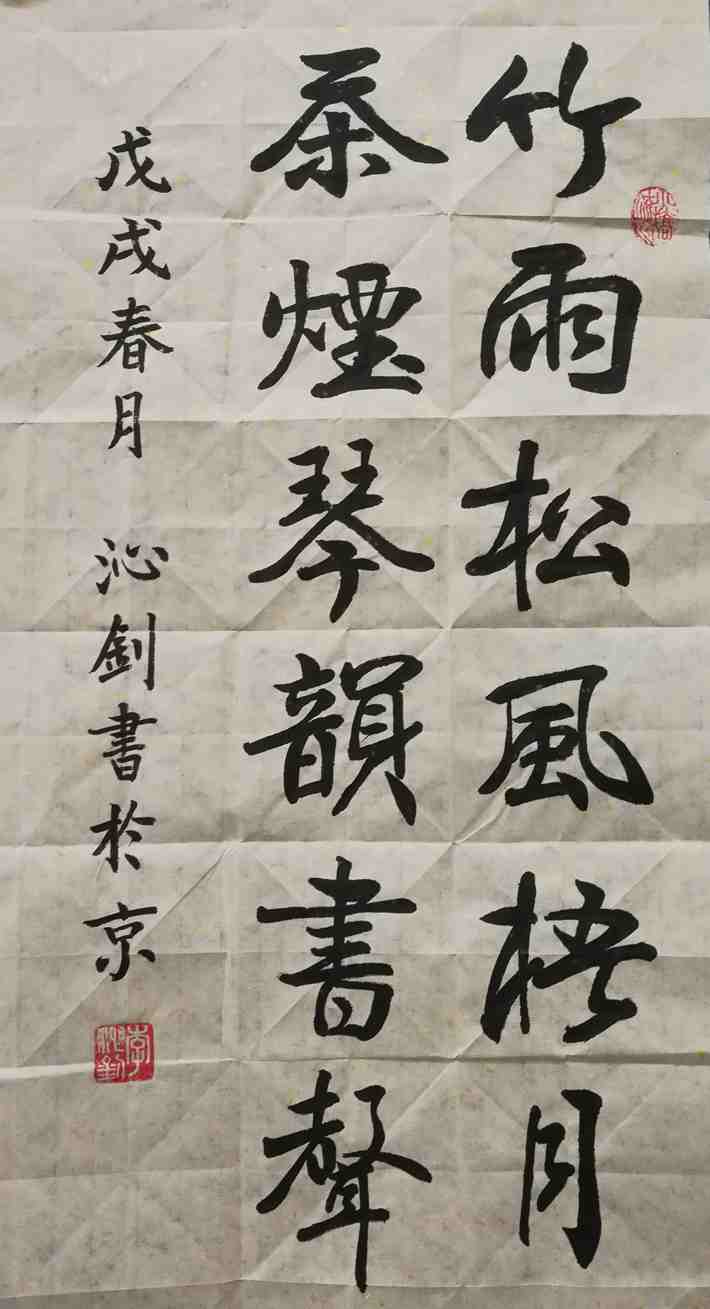 竹雨松風梧月
茶煙琴韻書聲
戊戌春月 沁劍書於京